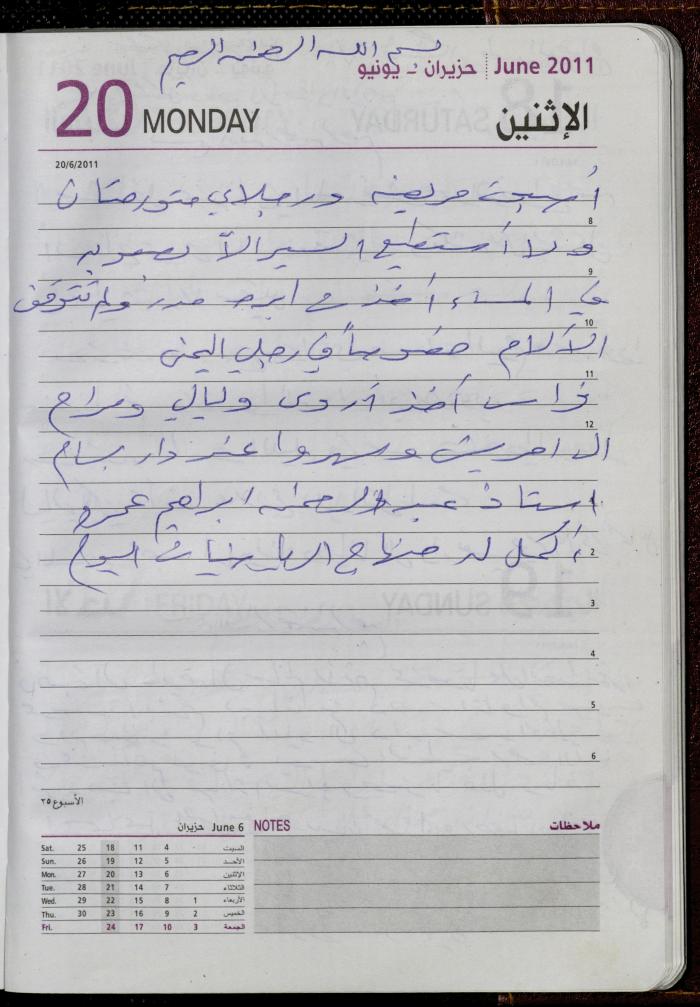 بسم الله الرحمن الرحيم
June 2011 حزيران ـ يونيو
20 MONDAY الإثنين
20/6/2011
أصبحت مريضة ورجلاي متورمتان
8
ولا أستطيع السير إلاّ بصعوبة
9
في المساء أخذت ابرة مدر ولم تتوقف
10
الآلام خصوصاً في رجلي اليمنى
11
فراس أخذ أروى وليالي وراح
12
الى وسهروا عند دار بسام
1
استاذ عبد الرحمن ابراهيم
أكمل له منهاج الرياضيات اليوم
2
3
4
5
6
الأسبوع ٢٥
June 6 حزيران
Sat. 25 18 11 4 السبت
Sun. 26 19 12 5 الأحد
Mon. 27 20 13 6 الإثنين
Tue. 28 21 14 7 الثلاثاء
Wed. 29 22 15 8 1 الأربعاء
Thu. 30 23 16 9 2 الخميس
Fri. 24 17 10 3 الجمعة
NOTES ملاحظات